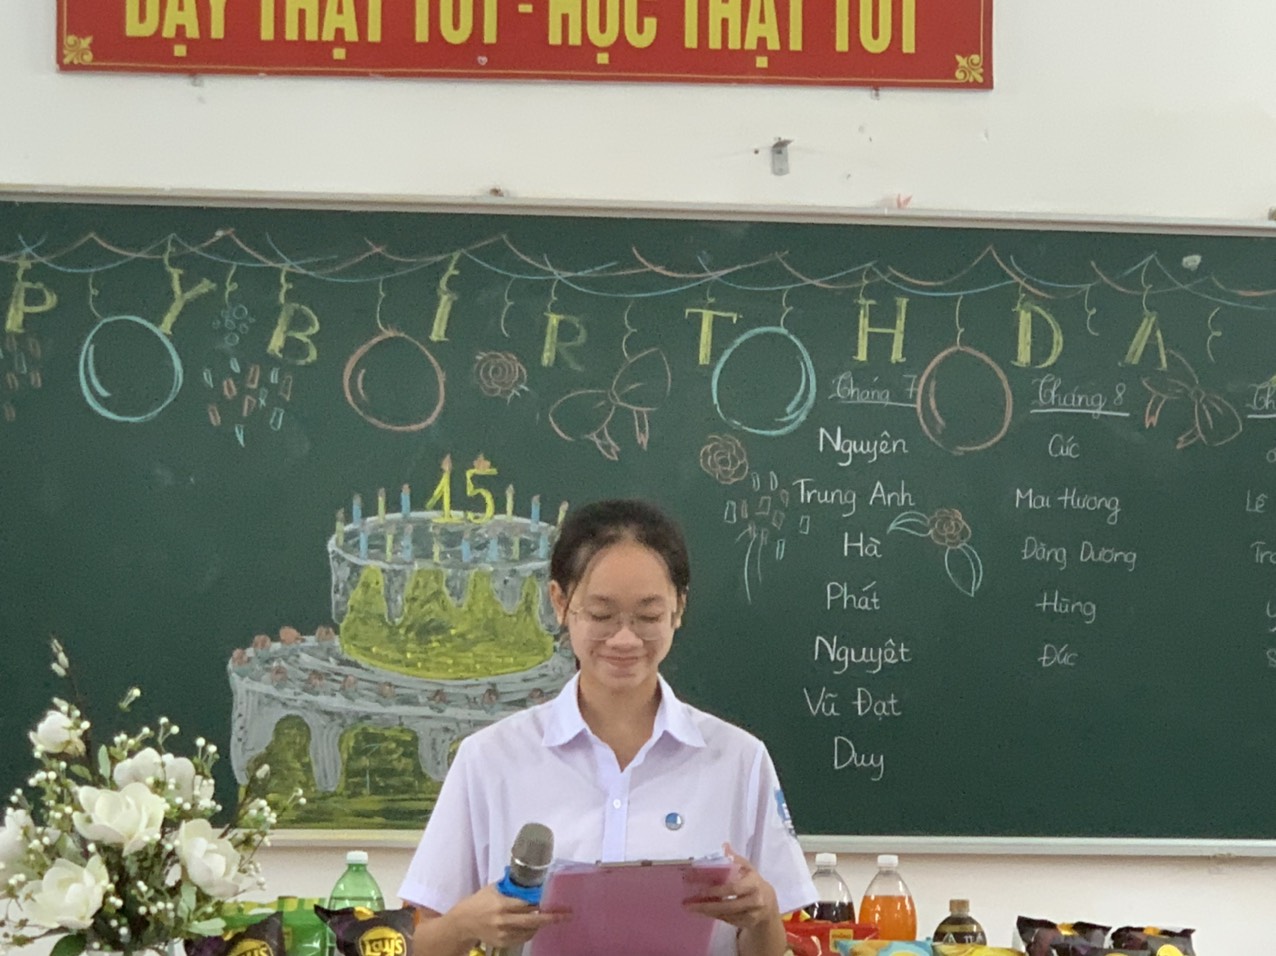 DẠY THẬT TỐT - HỌC THẬT TỐT
PY BIRTHDA
15
Tháng 7
Nguyên
Trung Anh
Hà
Phát
Nguyệt
Vũ Đạt
Duy
Tháng 8
Cúc
Mai Hương
Đăng Dương
Hùng
Đức
Th
Lê